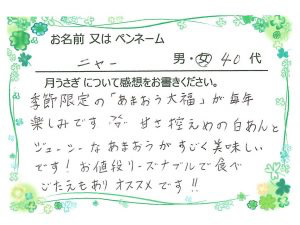 お名前 又は ペンネーム
ニャー 男・女 40 代
月うさぎ について感想をお書きください。
季節限定の「あまおう大福」が毎年
楽しみです 甘さ控えめの白あんと
ジューシーなあまおうがすごく美味しい
です! お値段リーズナブルで食べ
ごたえもあり オススメです!!